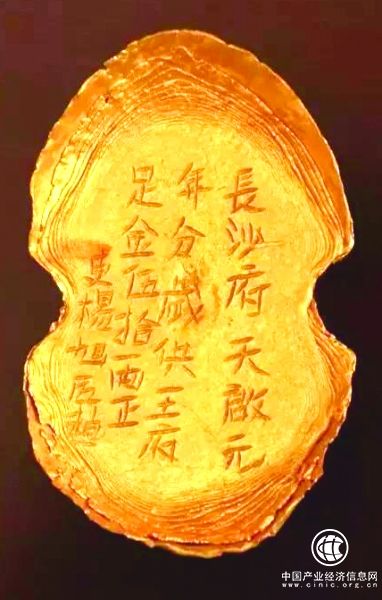 長沙府天啟元
年分歲供王府
足金伍拾兩正
吏楊旭匠趙
中国产业经济信息网
www.cinic.org.cn